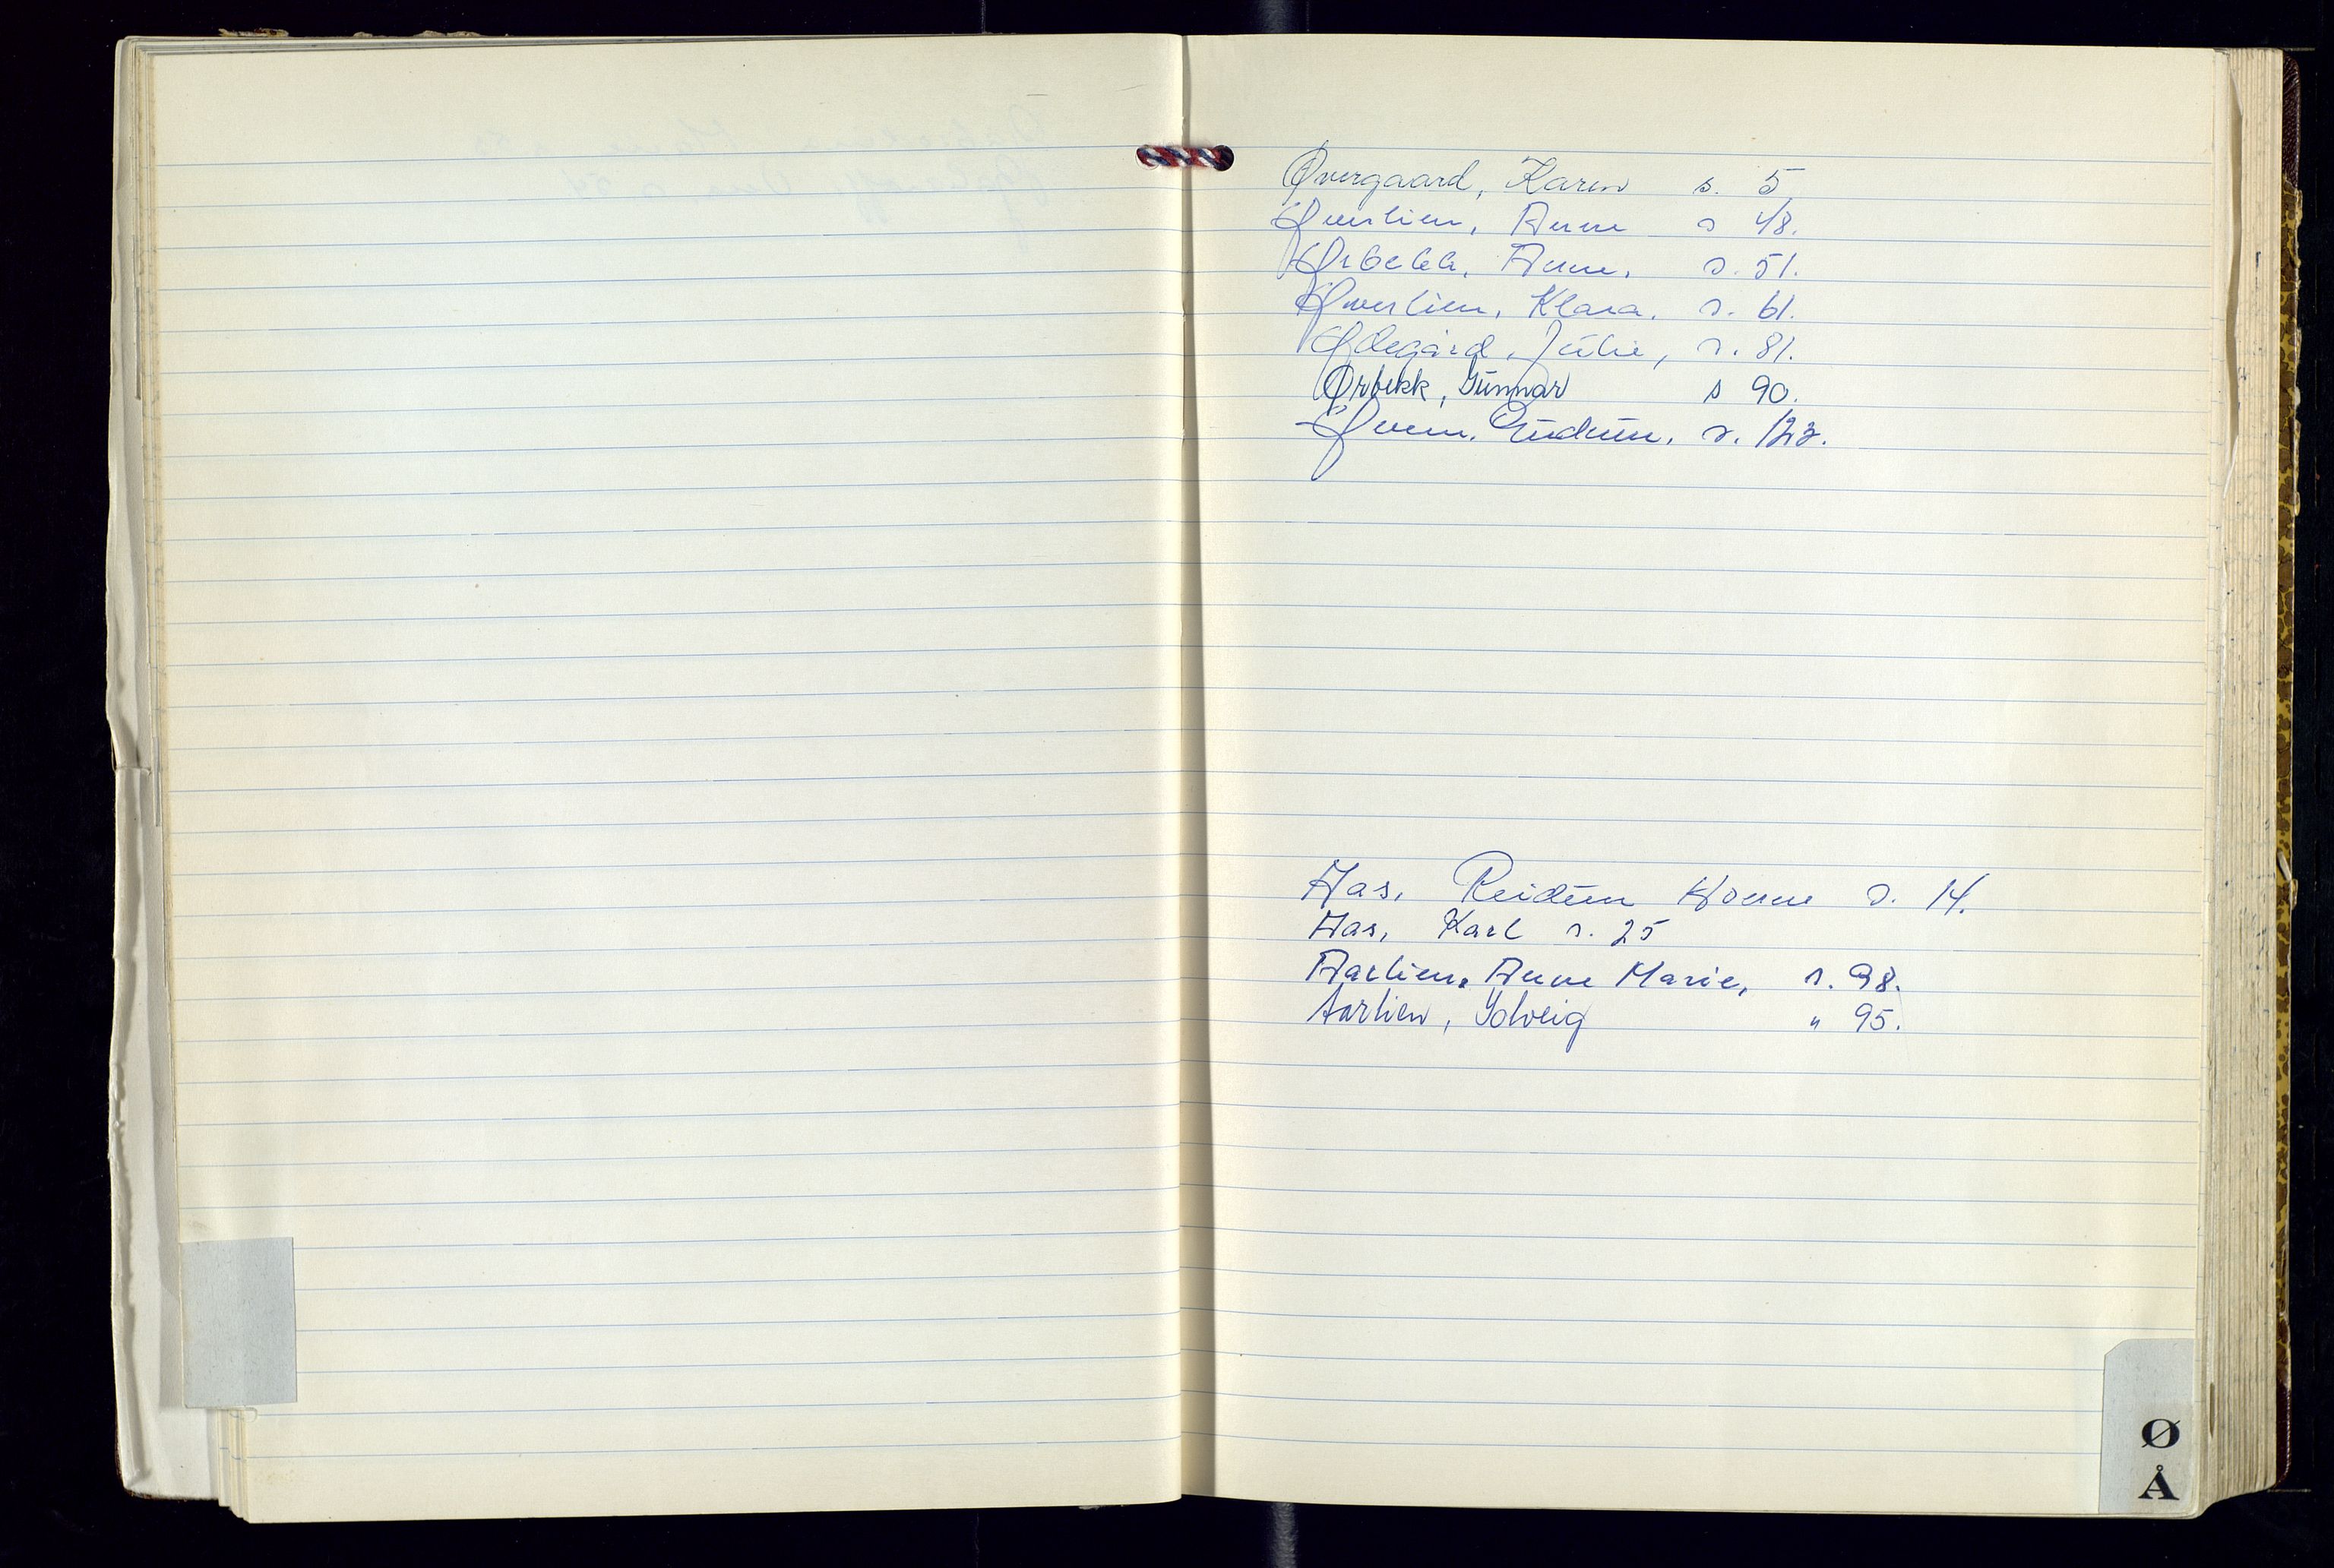 Øvergaard, Karen s. 5
Øverlien, Anne s 48.
Ørbekk, Anne. s. 51.
Øverlien, Klara. s. 61.
Ødegård, Julie, s. 81.
Ørbekk, Gunnar s 90.
Øveren. Gudrun. s. 123.
Aas, Reidun s. 14.
Aas, Karl s. 25
Aarlien, Anne Marie, s. 98.
Aarlien, Solveig " 95.
Ø
Å